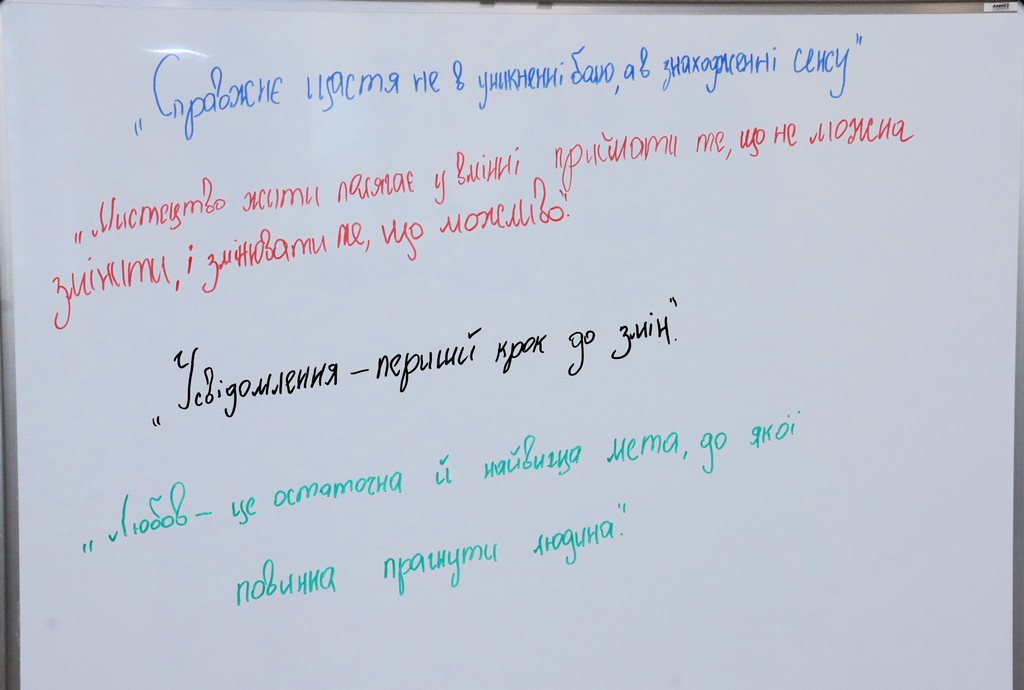 „Справжнє щастя не в уникненні болю, а в знаходженні сенсу"
„Мистецтво жити полягає у вмінні приймати те, що не можна
змінити, і змінювати те, що можливо."
„Усвідомлення – перший крок до змін."
„Любов – це остаточна й найвища мета, до якої
повинна прагнути людина."